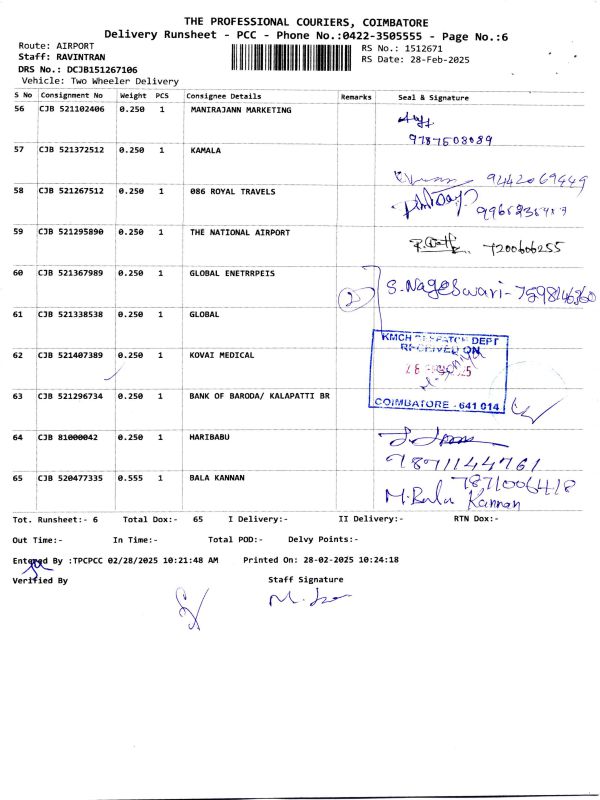 THE PROFESSIONAL COURIERS, COIMBATORE
Delivery Runsheet - PCC - Phone No.:0422-3505555 - Page No.:6
Route: AIRPORT
RS No.: 1512671
Staff: RAVINTRAN
RS Date: 28-Feb-2025
DRS No.: DCJB151267106
Vehicle: Two Wheeler Delivery
S No Consignment No Weight PCS Consignee Details Remarks Seal & Signature
56 CJB 521102406 0.250 1 MANIRAJANN MARKETING
9787508089
57 CJB 521372512 0.250 1 KAMALA
9442069449
58 CJB 521267512 0.250 1 086 ROYAL TRAVELS
59 CJB 521295890 0.250 1 THE NATIONAL AIRPORT
7200606255
60 CJB 521367989 0.250 1 GLOBAL ENETRRPEIS
2 S. Nageswari - 7598146360
61 CJB 521338538 0.250 1 GLOBAL
KMCH DESPATCH DEPT
RECEIVED ON
62 CJB 521407389 0.250 1 KOVAI MEDICAL
63 CJB 521296734 0.250 1 BANK OF BARODA/ KALAPATTI BR
COIMBATORE - 641 014
64 CJB 81000042 0.250 1 HARIBABU
9871144761
65 CJB 520477335 0.555 1 BALA KANNAN
7871006418
M. Bala Kannan
Tot. Runsheet:- 6 Total Dox:- 65 I Delivery:- II Delivery:- RTN Dox:-
Out Time:- In Time:- Total POD:- Delvy Points:-
Entered By :TPCPCC 02/28/2025 10:21:48 AM Printed On: 28-02-2025 10:24:18
Verified By Staff Signature